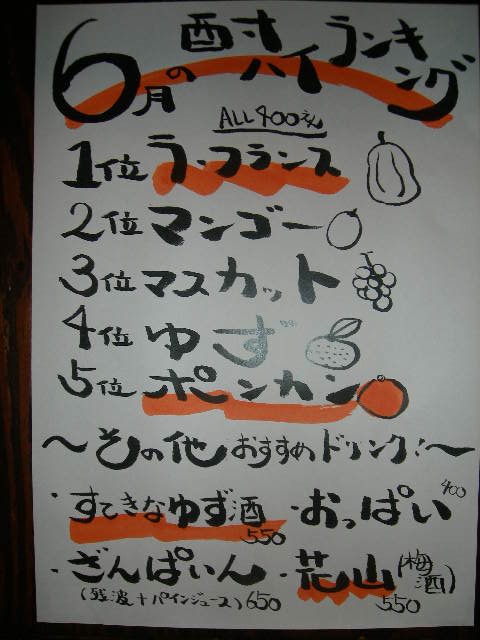 6月の酎ハイランキング
ALL400えん
1位 ラ・フランス
2位 マンゴー
3位 マスカット
4位 ゆず
5位 ポンカン
～その他おすすめドリンク！～
・すてきなゆず酒 550 ・おっぱい 400
・ざんぱいん (残波+パインジュース) 650 ・花山(梅酒) 550